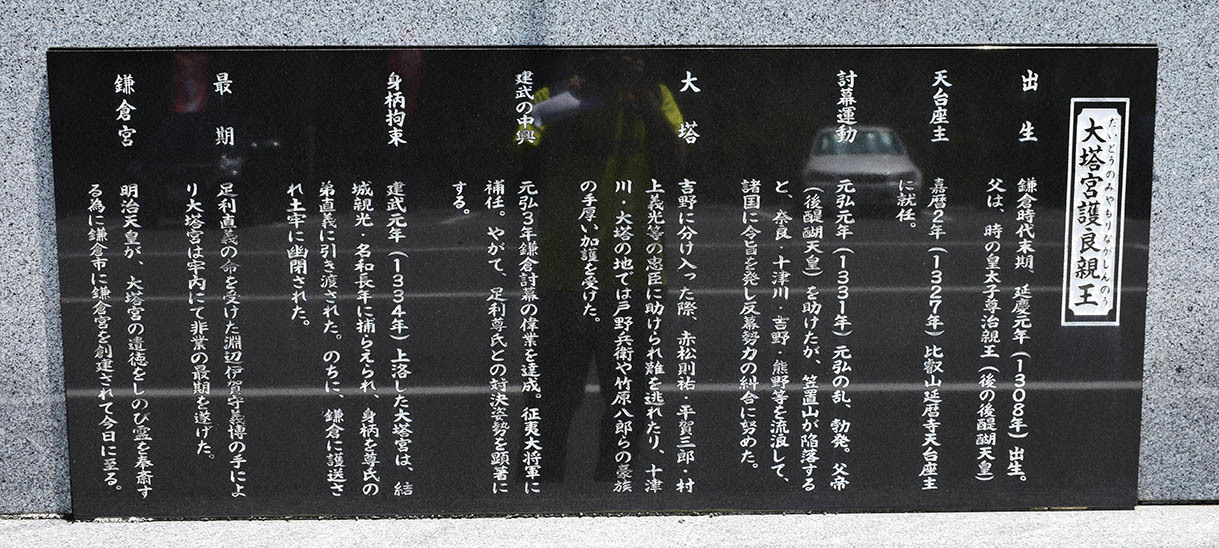 だいとうのみやもりながしんのう
大塔宮護良親王
出生
鎌倉時代末期、延慶元年（1308年）出生。
父は、時の皇太子尊治親王（後の後醍醐天皇）
天台座主
嘉暦2年（1327年）比叡山延暦寺天台座主
に就任。
討幕運動
元弘元年（1331年）元弘の乱、勃発。父帝
（後醍醐天皇）を助けたが、笠置山が陥落する
と、奈良・十津川・吉野・熊野等を流浪して、
諸国に令旨を発し反幕勢力の糾合に努めた。
大塔
吉野に分け入った際、赤松則祐・平賀三郎・村
上義光等の忠臣に助けられ難を逃れたり、十津
川・大塔の地では戸野兵衛や竹原八郎らの豪族
の手厚い加護を受けた。
建武の中興
元弘3年鎌倉討幕の偉業を達成。征夷大将軍に
補任。やがて、足利尊氏との対決姿勢を顕著に
する。
身柄拘束
建武元年（1334年）上洛した大塔宮は、結
城親光・名和長年に捕らえられ、身柄を尊氏の
弟直義に引き渡された。のちに、鎌倉に護送さ
れ土牢に幽閉された。
最期
足利直義の命を受けた淵辺伊賀守義博の手によ
り大塔宮は牢内にて非業の最期を遂げた。
鎌倉宮
明治天皇が、大塔宮の遺徳をしのび霊を奉斎す
る為に鎌倉市に鎌倉宮を創建されて今日に至る。